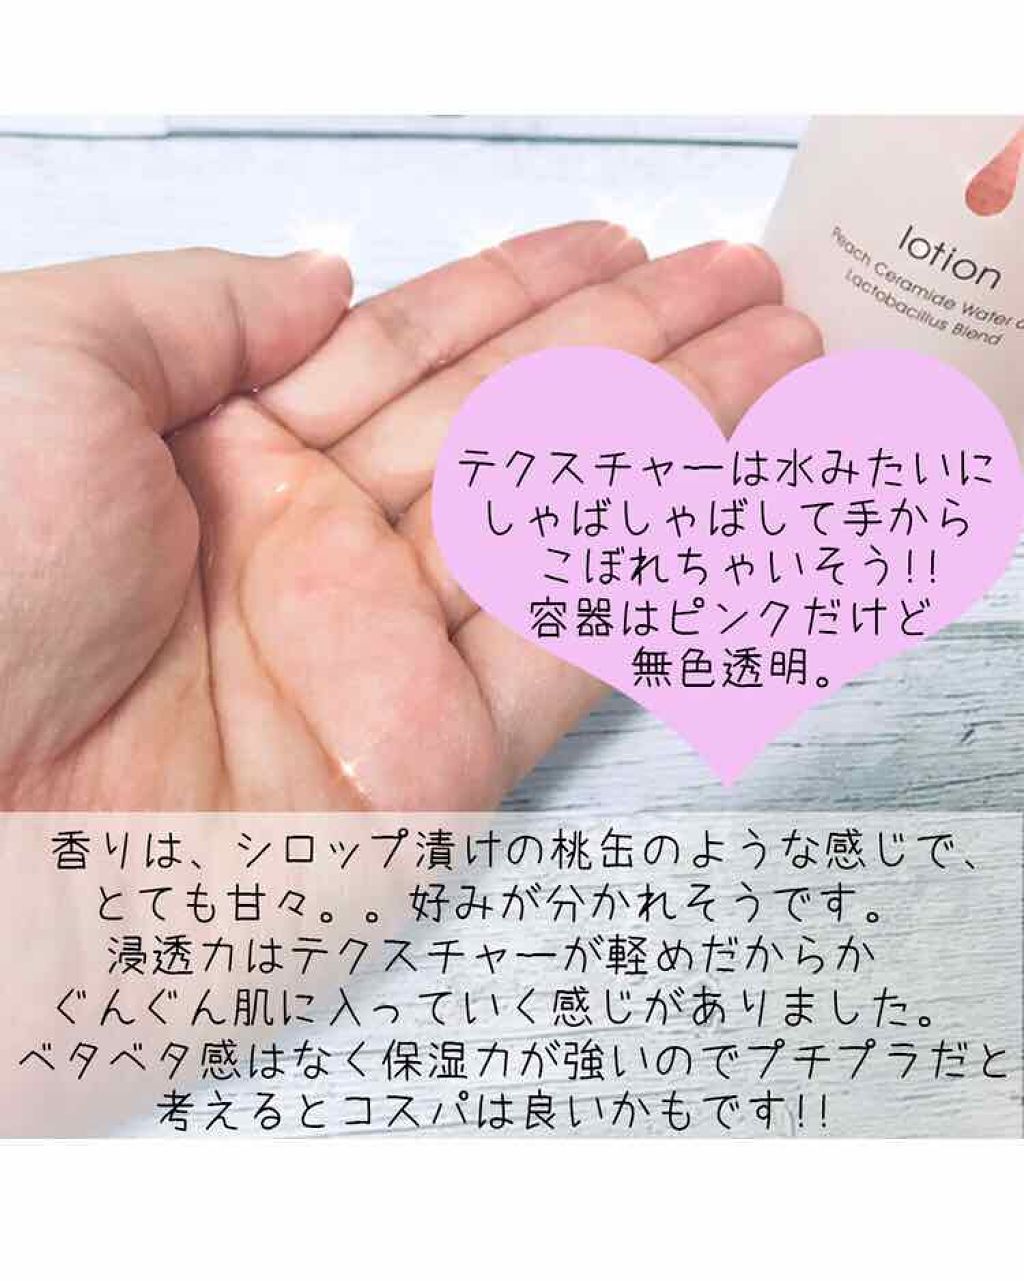 lotion
Peach Ceramide Water
Lactobacillus Blend
テクスチャーは水みたいに
しゃばしゃばして手から
こぼれちゃいそう!!
容器はピンクだけど
無色透明。
香りは、シロップ漬けの桃缶のような感じで、
とても甘々。。好みが分かれそうです。
浸透力はテクスチャーが軽めだからか
ぐんぐん肌に入っていく感じがありました。
ベタベタ感はなく保湿力が強いのでプチプラだと
考えるとコスパは良いかもです!!